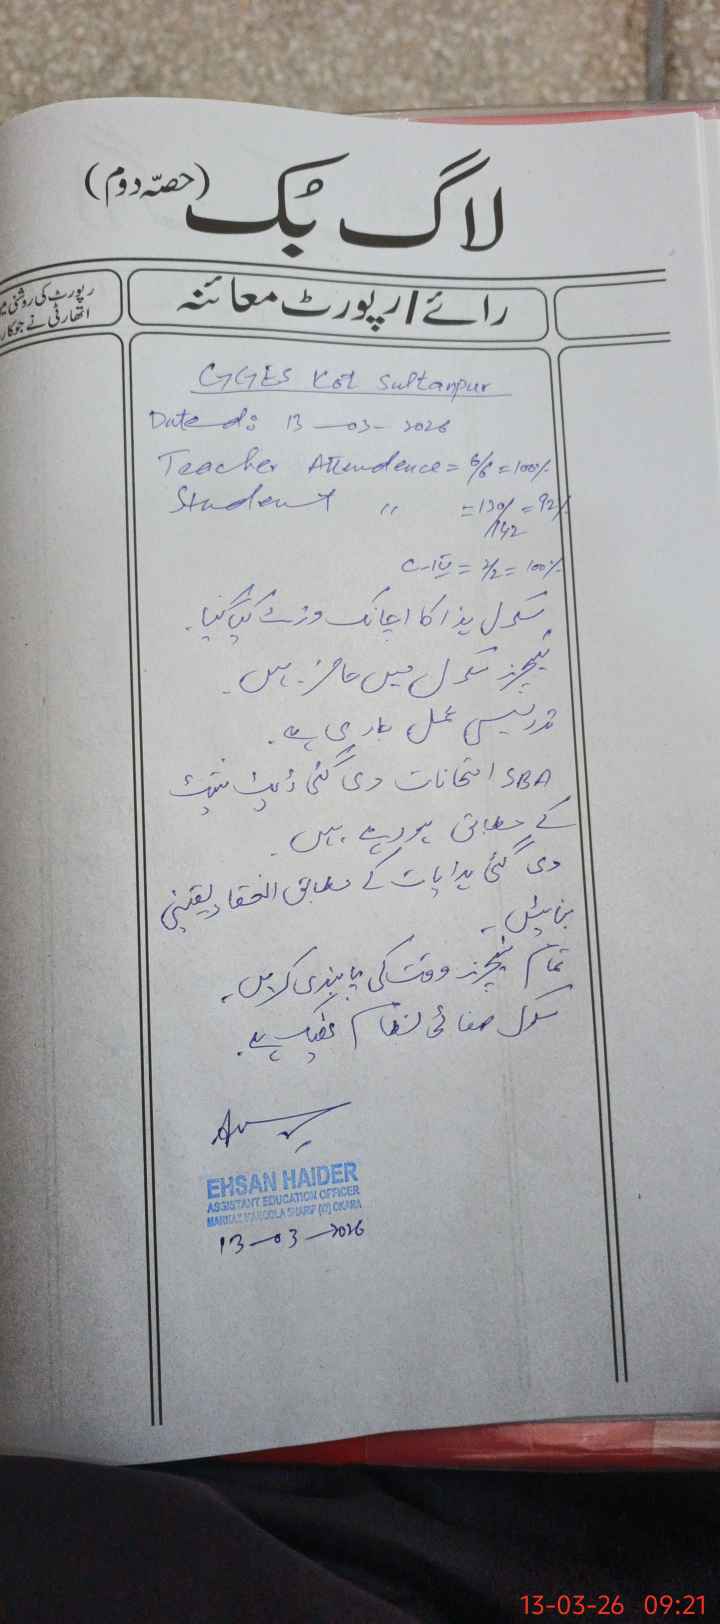 لاگ بُک (حصّہ دوم)
رائے/رپورٹ معائنہ
رپورٹ کی روشنی میں
اتھارٹی نے جو کار
GGES Kot Sultanpur
Dated: 13-03-2026
Teacher Attendence = 6/6 = 100%
Student " = 130/142 = 92%
= 2/2 = 100%
سکول ہذا کا اچانک وزٹ کیا گیا۔
ٹیچرز سکول میں حاضر ہیں۔
تدریسی عمل جاری ہے۔
SBA امتحانات دی گئی ڈیٹ شیٹ
کے مطابق ہو رہے ہیں۔
دی گئی ہدایات کے مطابق انعقاد یقینی
بنائیں۔
تمام ٹیچرز وقت کی پابندی کریں۔
سکول صفائی نظام ٹھیک ہے۔
EHSAN HAIDER
ASSISTANT EDUCATION OFFICER
MARKAZ SHARIF OKARA
13-03-2026
13-03-26 09:21